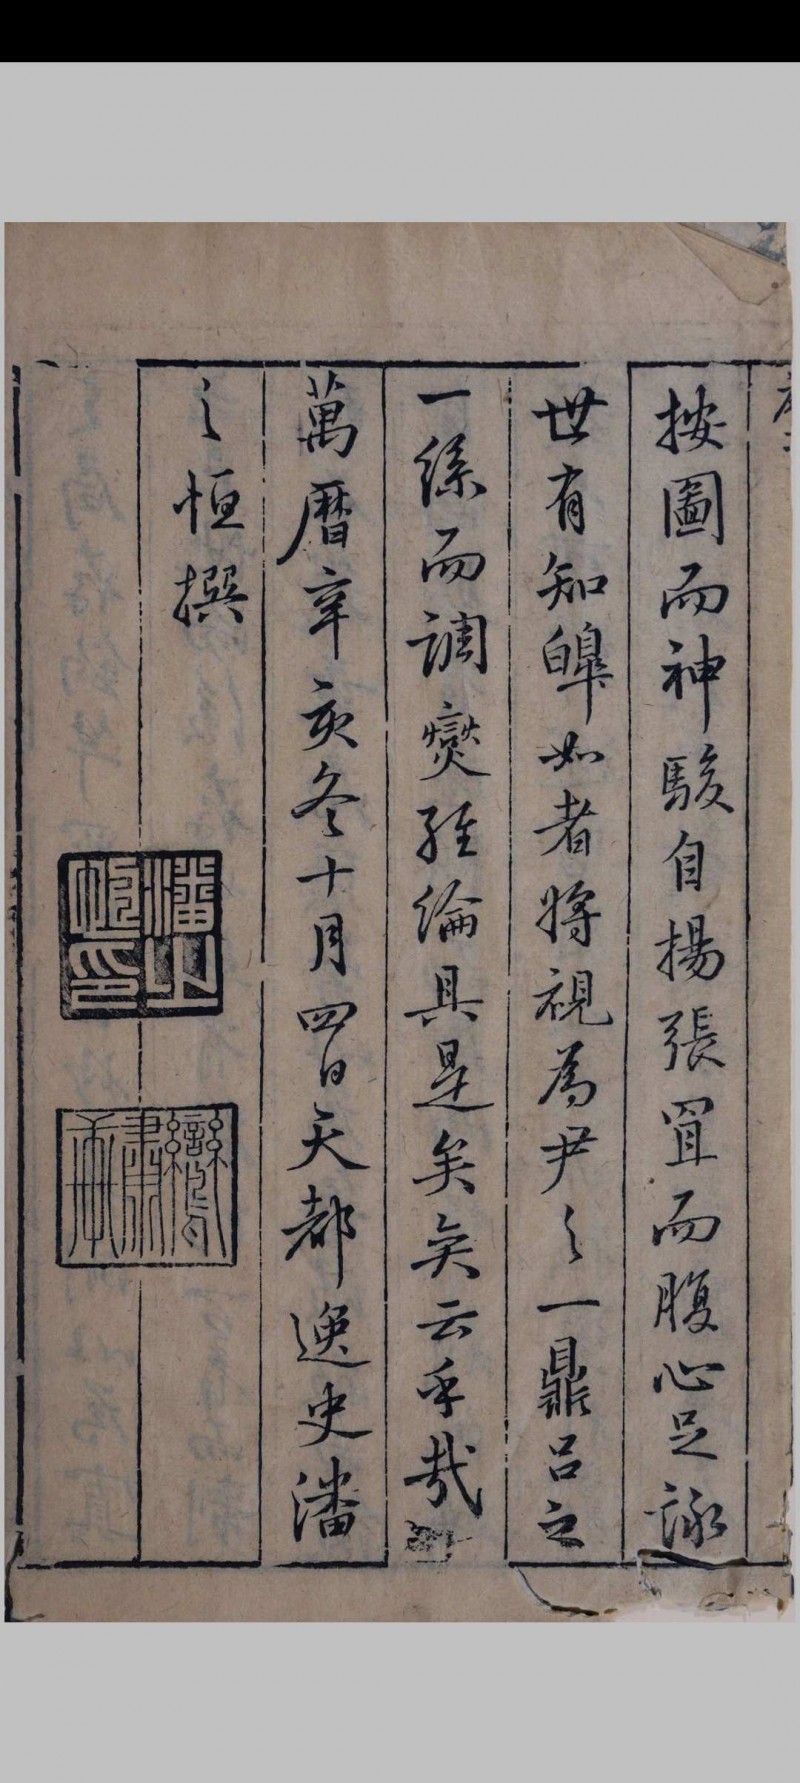 按圖而神駿自揚張罝而腹心足詠
世有知皥如者將視為尹之一鼎呂之
一絲而調燮經綸具是矣矣云乎哉
萬曆辛亥冬十月四日天都逸史潘
之恒撰
潘之恒印
鸞肅